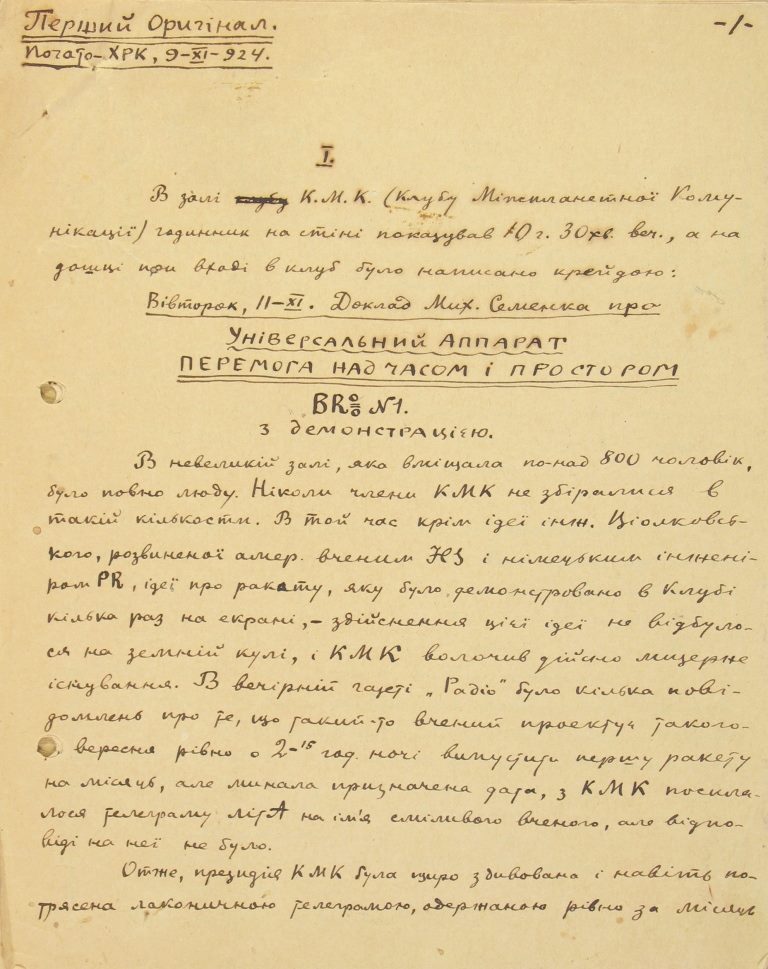 Перший Оригінал.
-1-
Почато-ХРК, 9-XI-924.
I.
В залі клубу К.М.К. (Клубу Міжпланетної Кому-
нікації) годинник на стіні показував 10 г. 30 хв. веч., а на
дошці при вході в клуб було написано крейдою:
Вівторок, 11-XI. Доклад Мих. Семенка про
УНІВЕРСАЛЬНИЙ АППАРАТ
ПЕРЕМОГА НАД ЧАСОМ І ПРОСТОРОМ
BR N1.
З ДЕМОНСТРАЦІЄЮ.
В невеликій залі, яка вміщала по-над 800 чоловік,
було повно люду. Ніколи члени КМК не збіралися в
такій кількости. В той час крім ідеї інж. Ціолковсь-
кого, розвиненої амер. вченим і німецьким інжені-
ром PR, ідеї про ракету, яку було демонстровано в Клубі
кілька раз на екрані,– здійснення цієї ідеї не відбуло-
ся на земній кулі, і КМК волочив дійсно мизерне
існування. В вечірній газеті „Радіо" було кілька пові-
домлень про те, що такий-то вчений проектує такого-
то вересня рівно о 2-15 год. ночі випустити першу ракету
на місяць, але минала призначена дата, з КМК посила-
лося телеграму літА на ім'я сміливого вченого, але відпо-
віді на неї не було.
Отже, президія КМК була щиро здивована і навіть по-
трясена лаконичною телеграмою, одержаною рівно за місяць